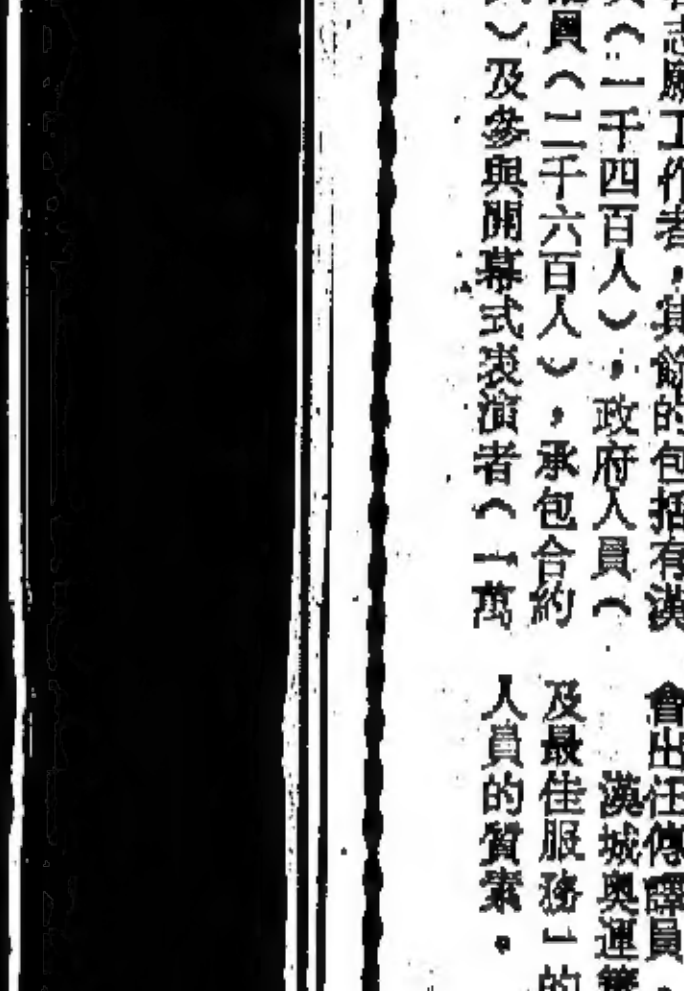 志願工作者，其餘的包括有漢
（一千四百人），政府人員（
員（二千六百人），承包合約
）及參與開幕式表演者（一萬
會出任傳譯員，
漢城奧運籌
及最佳服務」的
人員的質素。